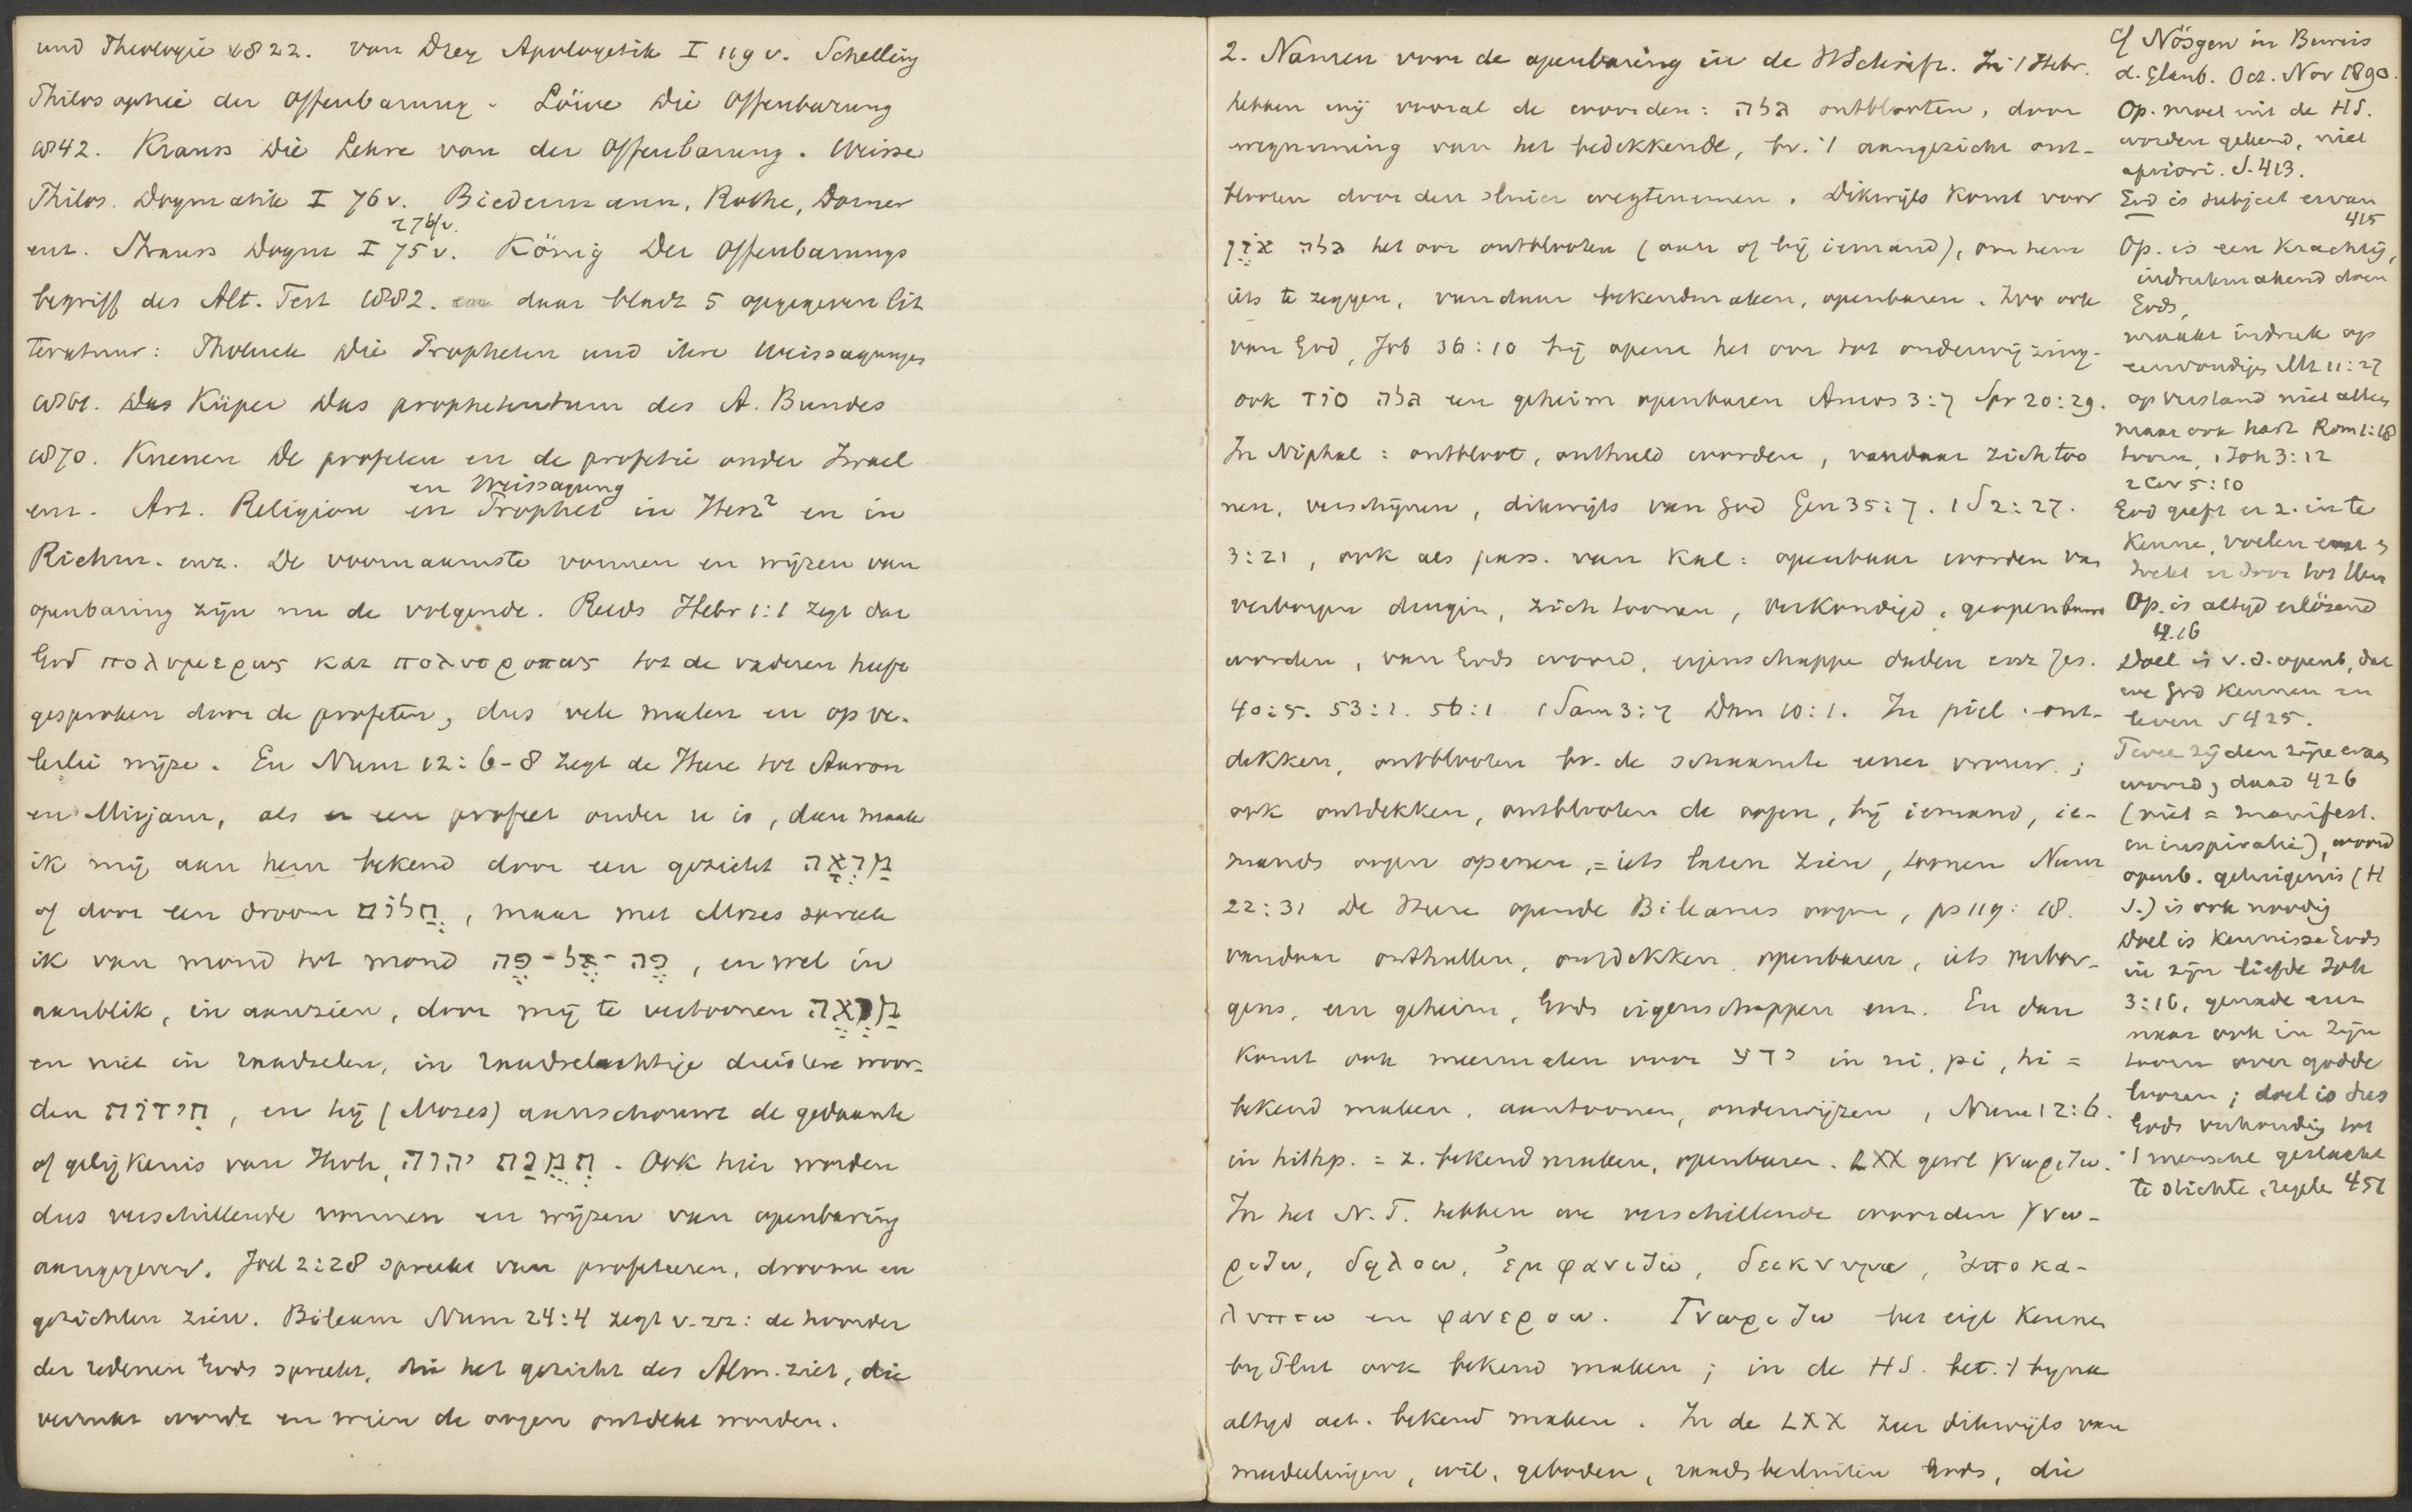 und Theologie 1822. van Drey Apologetik I 119 v. Schelling
Philosophie der Offenbarung. Löwe Die Offenbarung
1842. Krauss Die Lehre von der Offenbarung. Weisse
Philos. Dogmatik I 76 v. Biedermann, Rothe, Dorner
276/v.
enz. Strauss Dogm I 75 v. König Der Offenbarungs
begriff des Alt. Test 1882. daar bladz 5 opgegeven lit
teratuur: Tholuck Die Propheten und ihre Weissagungen
1861. Küper Das prophetentum des A. Bundes
1870. Kuenen De profeten en de profetie onder Israel
en Weissagung
enz. Art. Religion en Prophet in Herz² en in
Riehm. enz. De voornaamste vormen en wijzen van
openbaring zijn nu de volgende. Reeds Hebr 1:1 zegt dat
God πολυμερως και πολυτροπως tot de vaderen heeft
gesproken door de profeten, dus vele malen en op ve-
lerlei wijze. En Num 12:6-8 zegt de Heere tot Aaron
en Mirjam, als er een profeet onder u is, dan maak
ik mij aan hem bekend door een gezicht מַרְאָה
of door een droom חֲלוֹם, maar met Mozes spreek
ik van mond tot mond פֶּה-אֶל-פֶּה, en wel in
aanblik, in aanzien, door mij te vertoonen מַרְאֶה
en niet in raadselen, in raadselachtige duistere woor-
den חִידוֹת, en hij (Mozes) aanschouwt de gedaante
of gelijkenis van Jhvh, תְּמֻנַת יהוה. Ook hier worden
dus verschillende vormen en wijzen van openbaring
aangegeven. Joel 2:28 spreekt van profeteeren, droomen en
gezichten zien. Bileam Num 24:4 zegt v. zz: de hoorder
der redenen Gods spreekt, die het gezicht des Alm. ziet, die
verrukt wordt en wien de oogen ontdekt worden.
2. Namen voor de openbaring in de H Schrift. In 't Hebr.
hebben wij vooral de woorden: גלה ontblooten, door
wegneming van het bedekkende, bv. 't aangezicht ont-
blooten door den sluier wegtenemen. Dikwijls komt voor
גלה אֹזֶן het oor ontblooten (aan of bij iemand), om hem
iets te zeggen, vandaar bekendmaken, openbaren. Zoo ook
van God, Job 36:10 hij opent het oor tot onderwijzing.
ook גלה סוד een geheim openbaren Amos 3:7 Spr 20:29.
In Niphal: ontbloot, onthuld worden, vandaar zich too
nen, verschijnen, dikwijls van God Gen 35:7. 1 S 2:27.
3:21, ook als pass. van Kal: openbaar worden van
verborgen dingen, zich toonen, verkondigd, geopenbaard
worden, van Gods woord, eigenschappen daden enz Jes.
40:5. 53:1. 56:1 1 Sam 3:7 Dan 10:1. In piel: ont-
dekken, ontblooten bv. de schaamte eener vrouw;
ook ontdekken, ontblooten de oogen, bij iemand, ie-
mands oogen openen, = iets laten zien, toonen Num
22:31 De Heere opende Bileams oogen, ps 119:18.
vandaar onthullen, ontdekken openbaren, iets verbor-
gens, een geheim, Gods eigenschappen enz. En dan
komt ook meermalen voor ידע in ni, pi, hi =
bekend maken, aantoonen, onderwijzen, Num 12:6.
in hithp. = z. bekend maken, openbaren. LXX geeft γνωριζω.
In het N. T. hebben we verschillende woorden γνω-
ριζω, δηλοω, ἐμφανιζω, δεικνυμι, ἀποκα-
λυπτω en φανεροω. Γνωριζω het eigl kennen
by Plut ook bekend maken; in de HS. bet. 't byna
altyd act. bekend maken. In de LXX zeer dikwijls van
mededeelingen, wil, geboden, raadsbesluiten Gods, die
cf Nösgen in Beweis
d. Glaub. Oct. Nov 1890.
Op. moet uit de HS.
worden gekend, niet
apriori. S. 413.
God is subject ervan
415
Op. is een krachtig,
indrukmakend doen
Gods,
maakt indruk op
eenvoudigen Mt 11:27
op verstand niet alleen
maar ook hart Rom 1:18
toorn, 1 Joh 3:12
2 Cor 5:10
God geeft er z. in te
kennen, voelen en
trekt er door tot Hem
Op. is altyd erlösend
416
Doel is v. d. openb, dat
we God kennen en
leven S 425.
Twee zijden zijn eraan
woord, daad 426
(niet = manifest.
en inspiratie), woord
openb. getuigenis (H
S.) is ook noodig
Doel is kennisse Gods
in zijn liefde Joh
3:16, genade enz
maar ook in zijn
toorn over godde
loozen; doel is dus
Gods verhouding tot
't menschel geslacht
te stichten, regelen 451